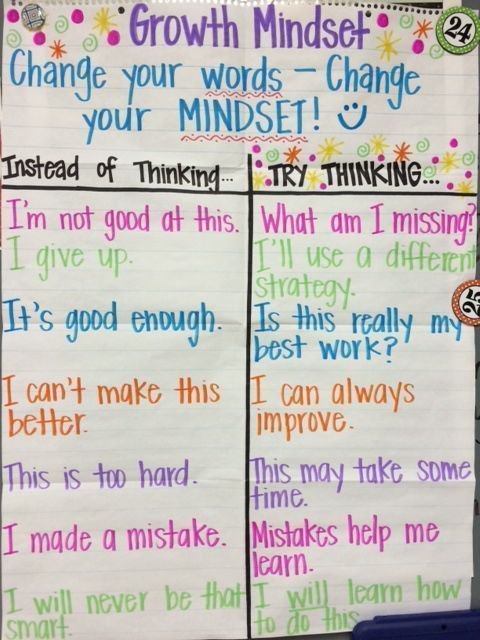 Growth Mindset
24
Change your words – Change
your MINDSET!
Instead of Thinking...
TRY THINKING...
I'm not good at this.
What am I missing?
I give up.
I'll use a different
strategy.
25
It's good enough.
Is this really my
best work?
I can't make this
better.
I can always
improve.
This is too hard.
This may take some
time.
I made a mistake.
Mistakes help me
learn.
I will never be that
smart.
I will learn how
to do this